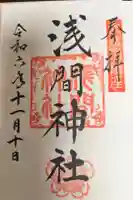 奉拝
浅間神社
令和六年十一月十日